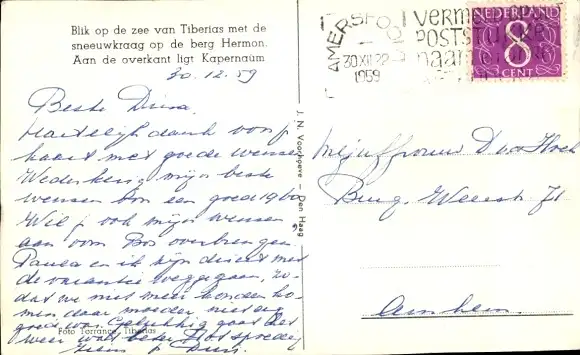 Blik op de zee van Tiberias met de
sneeuwkraag op de berg Hermon.
Aan de overkant ligt Kapernaüm
30.12.59
Beste Dina,
Hartelijk dank voor je
kaart met goede wensen.
Wederkerig mijn beste
wensen voor een goed 1960
Wil je ook mijn wensen
aan oom Bos overbrengen.
Paula en ik zijn direct met
de vacantie weggegaan, zo-
dat we met meer konden ko-
men, daar moeder niet en
goed was. Gelukkig gaat het
weer wat beter. Tot spoedig
ziens
Foto Torrance, Tiberias
J. N. Voorhoeve - Den Haag
AMERSFOORT
30 XII 22
1959
POSTSTUKKEN
NEDERLAND
8
CENT
Mejuffrouw D v d Hoek
Burg. Weerst 71
Arnhem.